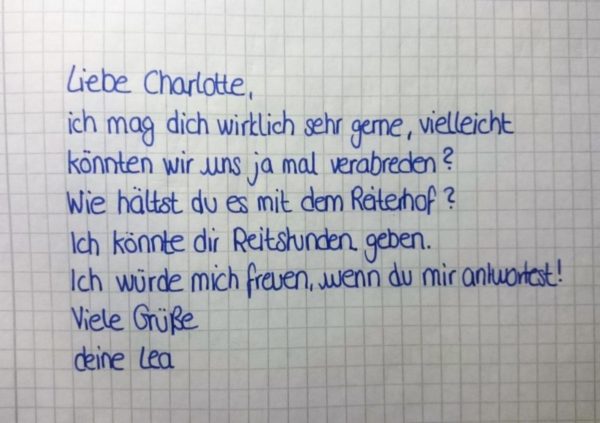 Liebe Charlotte,
ich mag dich wirklich sehr gerne, vielleicht
könnten wir uns ja mal verabreden?
Wie hältst du es mit dem Reiterhof?
Ich könnte dir Reitstunden geben.
Ich würde mich freuen, wenn du mir antwortest!
Viele Grüße
deine Lea